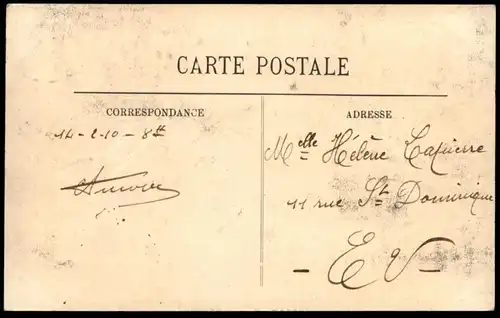 CARTE POSTALE
CORRESPONDANCE
14-2-10-8
ADRESSE
Melle Hélène Lapierre
11 rue St Dominique
E V